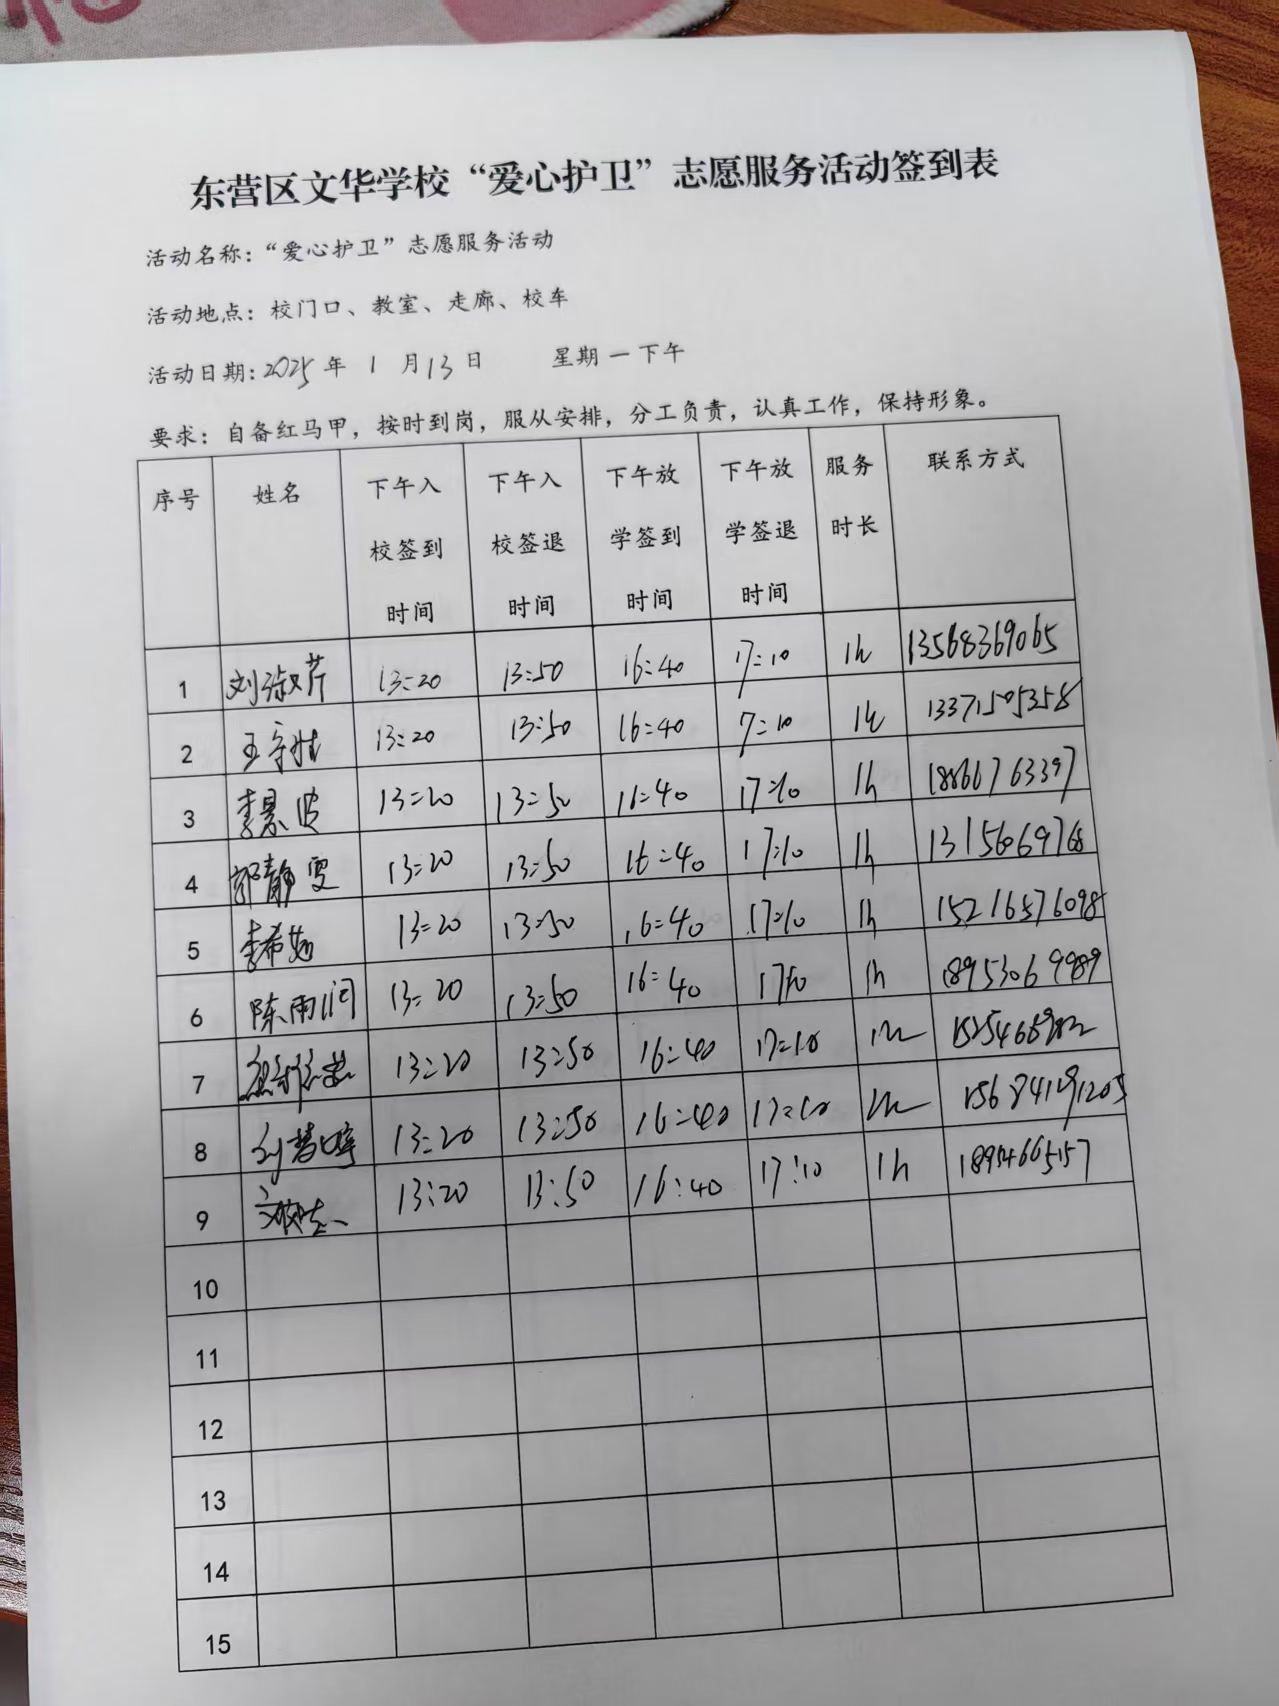 东营区文华学校“爱心护卫”志愿服务活动签到表
活动名称：“爱心护卫”志愿服务活动
活动地点：校门口、教室、走廊、校车
活动日期:2025年 1 月13日 星期一下午
要求：自备红马甲，按时到岗，服从安排，分工负责，认真工作，保持形象。
序号 姓名 下午入校签到时间 下午入校签退时间 下午放学签到时间 下午放学签退时间 服务时长 联系方式
1 刘淑芹 13:20 13:50 16:40 17:10 1h 13568369065
2 13:20 13:50 16:40 7:10 1h 13371505358
3 李景波 13:20 13:50 16:40 17:10 1h 18866763397
4 郭静雯 13:20 13:50 16:40 17:10 1h 13156069768
5 李希 13:20 13:50 16:40 17:10 1h 15216576098
6 陈雨润 13:20 13:50 16:40 1710 1h 18953069989
7 13:20 13:50 16:40 17:10 1h
8 刘慧 13:20 13:50 16:40 17:10 1h 15684191205
9 13:20 13:50 16:40 17:10 1h
10
11
12
13
14
15